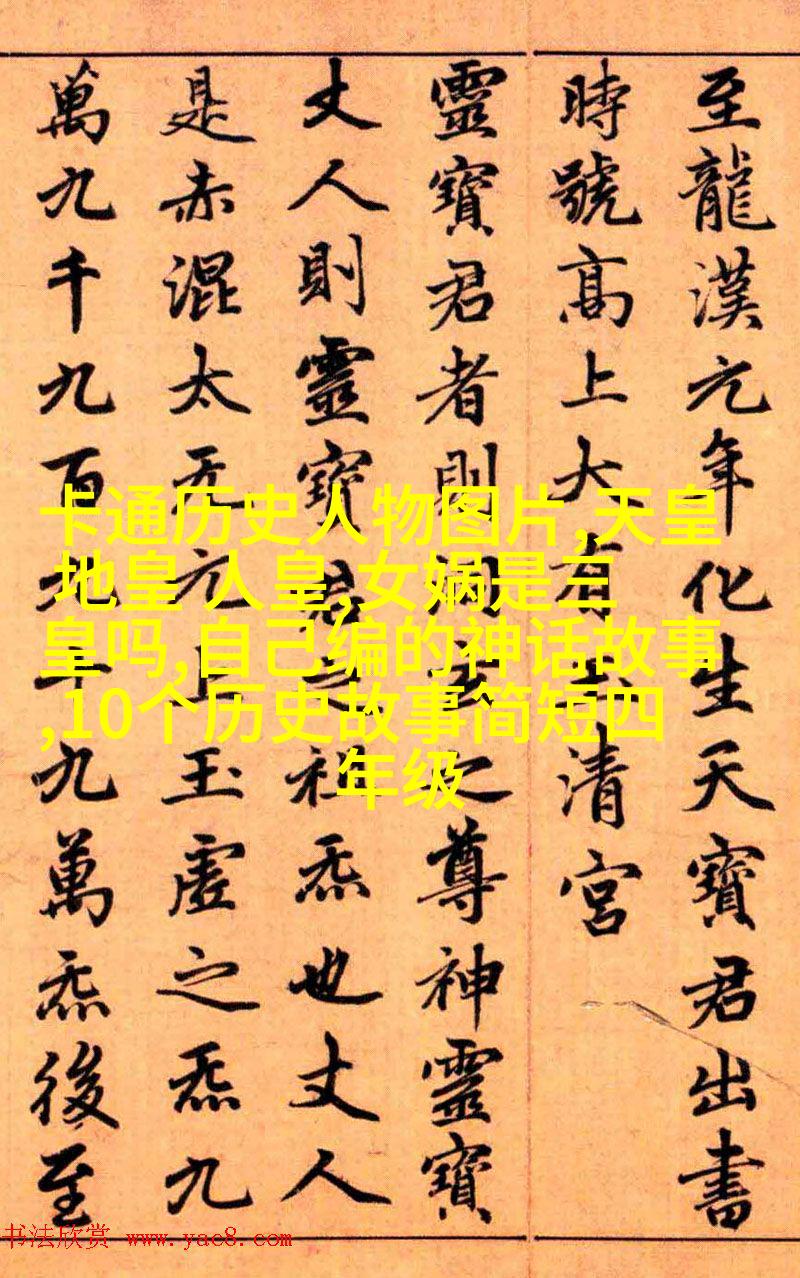 至龍漢元年化生天寶君出書
時號高上大有玉清宮
靈寶君者則洞玄之尊神靈寶
丈人則靈寶君之祖炁也丈人
是赤混太无元上玉虛之炁九
萬九千九百九十九萬炁後至
卡通历史人物图片,天皇
地皇 人皇,女娲是三
皇吗,自己编的神话故事
,10个历史故事简短四
年级
书法欣赏 www.yac8.com